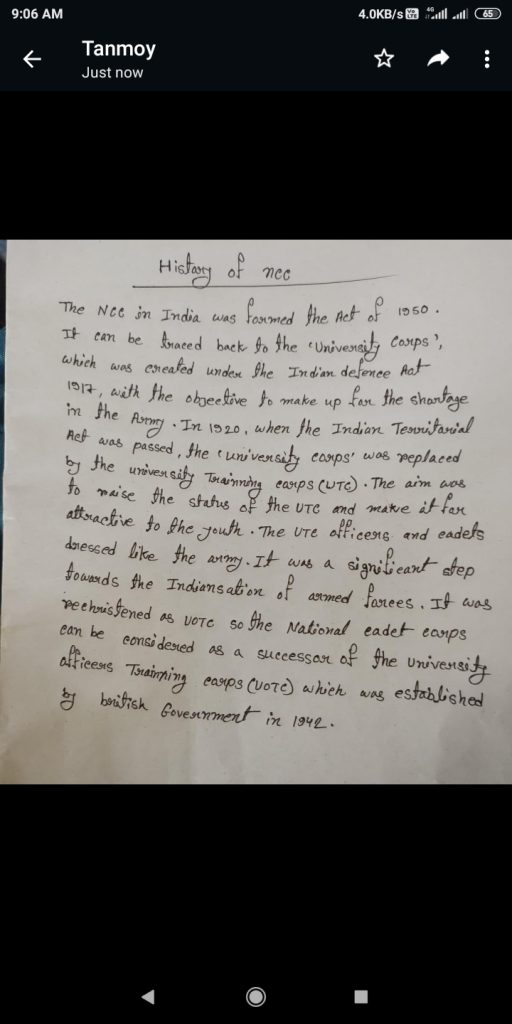 9:06 AM 4.0KB/s Vo LTE 4G 65
Tanmoy
Just now
History of ncc
The NCC in India was formed the Act of 1950.
It can be traced back to the 'University Corps',
which was created under the Indian defence Act
1917, with the objective to make up for the shortage
in the Army. In 1920, when the Indian Territorial
Act was passed, the 'university corps' was replaced
by the university Trainning corps (UTC). The aim was
to raise the status of the UTC and make it far
attractive to the youth. The UTC officers and cadets
dressed like the army. It was a significant step
towards the Indiansation of armed forces. It was
rechristened as UOTC so the National cadet corps
can be considered as a successor of the university
officers Trainning corps (UOTC) which was established
by british Government in 1942.